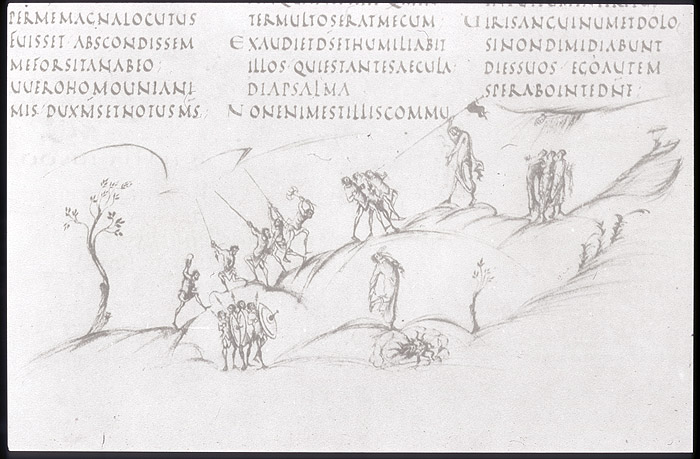 PERMEMAGNALOCUTUS
FUISSET ABSCONDISSEM
MEFORSITANABEO
UUEROHOMOUNIANI
MIS DUXMSETNOTUSMS
TERMULTOSERATMECUM
EXAUDIETDSETHUMILIABIT
ILLOS QUIESTANTESAECULA
DIAPSALMA
NONENIMESTILLISCOMMU
UIRISANGUINUMETDOLO
SINONDIMIDIABUNT
DIESSUOS EGOAUTEM
SPERABOINTEDNE